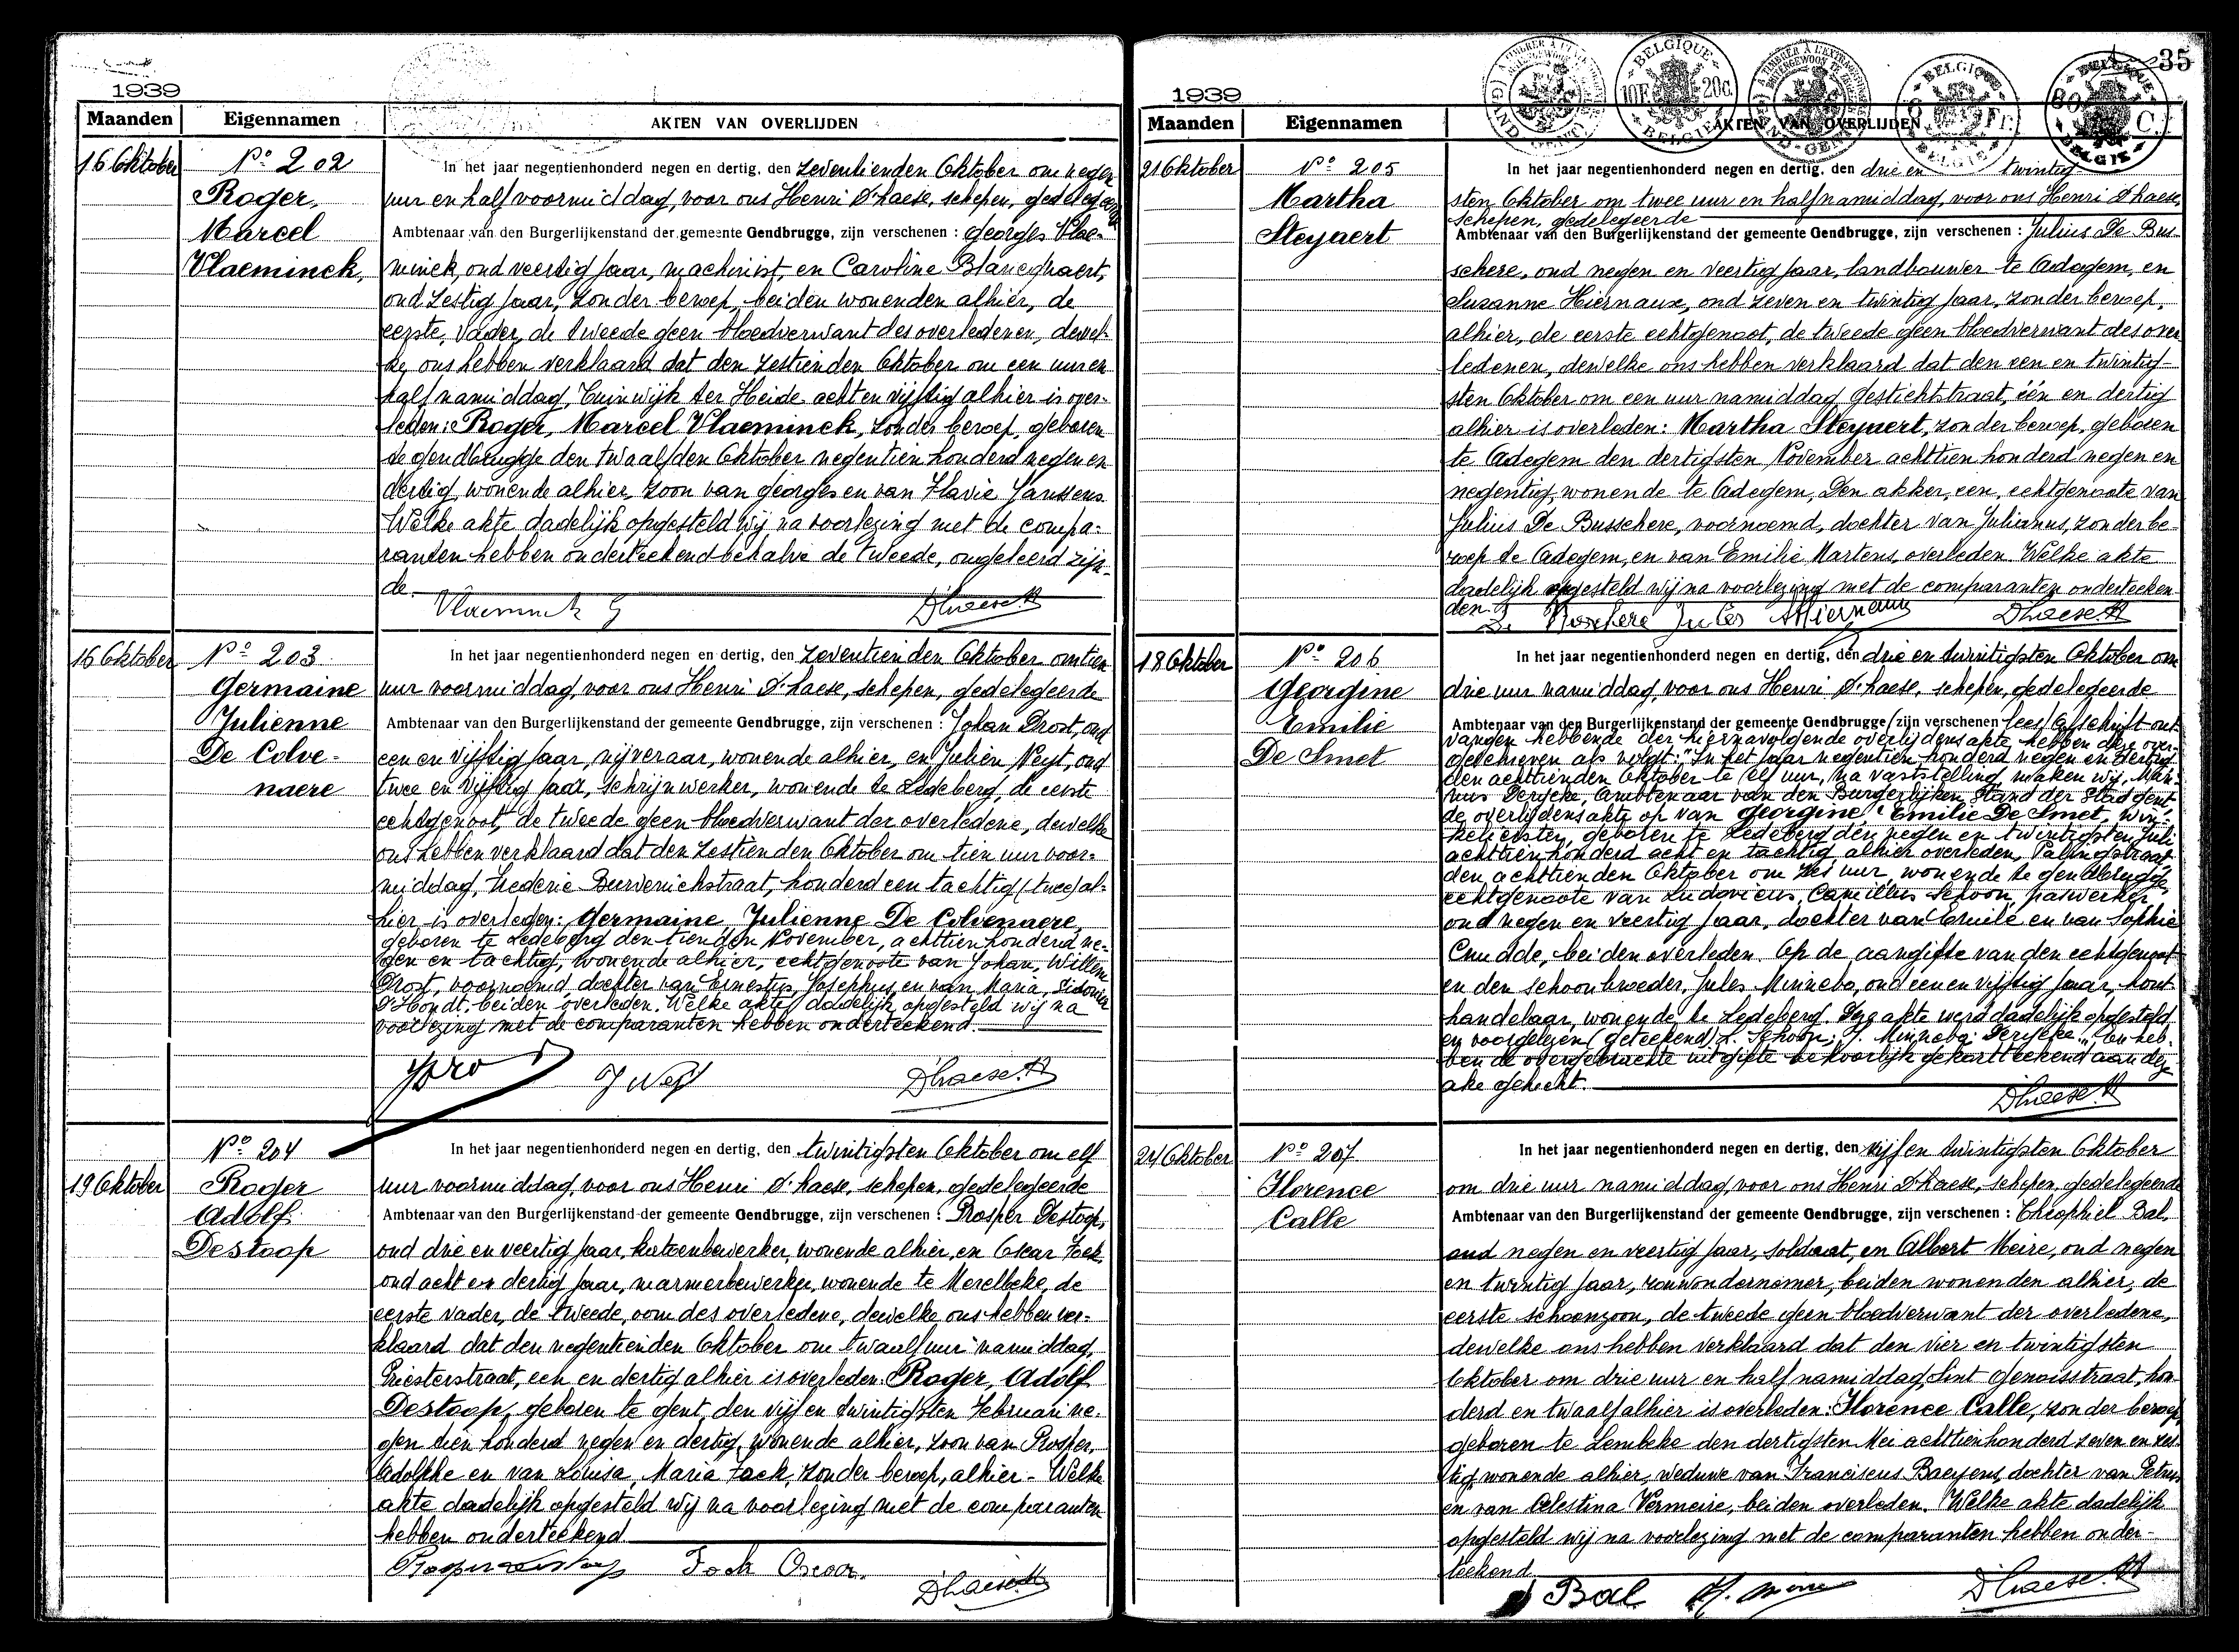 1939
Maanden Eigennamen AKTEN VAN OVERLIJDEN
16 Oktober
No 202
Roger,
Marcel
Vlaeminck,
In het jaar negentienhonderd negen en dertig, den zeventienden Oktober om negen
uur en half voormiddag, voor ons Henri D'haese, schepen, gedelegeerde
Ambtenaar van den Burgerlijkenstand der gemeente Gendbrugge, zijn verschenen : Georges Vlae-
minck, oud veertig jaar, machinist, en Caroline Blancghaert,
oud zestig jaar, zonder beroep, beiden wonenden alhier, de
eerste, vader, de tweede geen bloedverwant des overledenen, dewel-
ke ons hebben verklaard dat den zestienden Oktober om een uur en
half namiddag, Tuinwijk ter Heide acht en vijftig alhier is over-
leden: Roger, Marcel Vlaeminck, zonder beroep, geboren
te Gendbrugge den twaalfden Oktober negentien honderd negen en
dertig, wonende alhier, zoon van Georges en van Flavie Janssens.
Welke akte dadelijk opgesteld wij na voorlezing met de compa-
ranten hebben onderteekend behalve de tweede, ongeleerd zijn-
de.
Vlaeminck G D'haese H
16 Oktober
No 203
Germaine
Julienne
De Colve-
naere
In het jaar negentienhonderd negen en dertig, den zeventienden Oktober om tien
uur voormiddag, voor ons Henri D'haese, schepen, gedelegeerde
Ambtenaar van den Burgerlijkenstand der gemeente Gendbrugge, zijn verschenen : Johan Drost, oud
een en vijftig jaar, nijveraar, wonende alhier, en Julien Neyt, oud
twee en vijftig jaar, schrijnwerker, wonende te Ledeberg, de eerste
echtgenoot, de tweede geen bloedverwant der overledene, dewelke
ons hebben verklaard dat den zestienden Oktober om tien uur voor-
middag, Frederic Burvenichstraat, honderd een tachtig (twee) al-
hier is overleden: Germaine, Julienne De Colvenaere,
geboren te Ledeberg den tienden November, achttien honderd ne-
gen en tachtig, wonende alhier, echtgenoote van Johan, Willem
Drost, voornoemd dochter van Ernestus, Josephus en van Maria, Sidonia
D'Hondt, beiden overleden. Welke akte dadelijk opgesteld wij na
voorlezing met de comparanten hebben onderteekend.
J Neyt D'haese H
19 Oktober
No 204
Roger
Adolf
Destoop
In het jaar negentienhonderd negen en dertig, den twintigsten Oktober om elf
uur voormiddag, voor ons Henri D'haese, schepen, gedelegeerde
Ambtenaar van den Burgerlijkenstand der gemeente Gendbrugge, zijn verschenen : Prosper Destoop,
oud drie en veertig jaar, katoenbewerker, wonende alhier, en Oscar Fack,
oud acht en dertig jaar, marmerbewerker, wonende te Merelbeke, de
eerste vader, de tweede, oom des overledene, dewelke ons hebben ver-
klaard dat den negentienden Oktober om twaalf uur namiddag,
Priesterstraat, een en dertig alhier is overleden: Roger, Adolf
Destoop, geboren te Gent, den vijf en twintigsten Februari ne-
gen tien honderd negen en dertig, wonende alhier, zoon van Prosper,
Adolphe en van Louisa, Maria Fack, zonder beroep, alhier - Welke
akte dadelijk opgesteld wij na voorlezing met de comparanten
hebben onderteekend
Prosper Destoop Fack Oscar. D'haese H
35
BELGIQUE 10F. 20c. BELGIË
BELGIQUE Fr. BELGIË
BELGIQUE 80 C. BELGIË
1939
Maanden Eigennamen AKTEN VAN OVERLIJDEN
21 Oktober
No 205
Martha
Steyaert
In het jaar negentienhonderd negen en dertig, den drie en twintig-
sten Oktober om twee uur en half namiddag, voor ons Henri D'haese,
schepen, gedelegeerde
Ambtenaar van den Burgerlijkenstand der gemeente Gendbrugge, zijn verschenen : Julius De Bus-
schere, oud negen en veertig jaar, landbouwer te Adegem, en
Susanne Hiernaux, oud zeven en twintig jaar, zonder beroep,
alhier, de eerste echtgenoot, de tweede geen bloedverwant des over
ledenen, dewelke ons hebben verklaard dat den een en twintig-
sten Oktober om een uur namiddag Gestichtstraat, één en dertig
alhier is overleden: Martha Steyaert, zonder beroep, geboren
te Adegem den dertigsten November achttien honderd negen en
negentig, wonende te Adegem, Den akker, een, echtgenoote van
Julius De Busschere, voornoemd, dochter van Julianus, zonder be-
roep te Adegem, en van Emilie Martens, overleden. Welke akte
dadelijk opgesteld wij na voorlezing met de comparanten onderteeken-
den.
De Busschere Jules SHiernaux D'haese H
18 Oktober
No 206
Georgine
Emilie
De Smet
In het jaar negentienhonderd negen en dertig, den drie en twintigsten Oktober om
drie uur namiddag, voor ons Henri D'haese, schepen, gedelegeerde
Ambtenaar van den Burgerlijkenstand der gemeente Gendbrugge (zijn verschenen lees) afschrift ont-
vangen hebbende der hiernavolgende overlijdensakte hebben deze over-
geschreven als volgt: "In het jaar negentien honderd negen en dertig
den achttienden Oktober te elf uur, na vaststelling maken wij, Mari-
nus Derycke, Ambtenaar van den Burgerlijken Stand der Stad Gent
de overlijdensakte op van Georgine, Emilie De Smet, win-
kelierster, geboren te Ledeberg den negen en twintigsten Juli
achttien honderd acht en tachtig alhier overleden, Palingstraat
den achttienden Oktober om zes uur, wonende te Gendbrugge,
echtgenoote van Ludovicus, Camillus Schoon, paswerker,
oud negen en veertig jaar, dochter van Emile en van Sophie
Cnudde, beiden overleden. Op de aangifte van den echtgenoot
en den schoonbroeder, Jules Minnebo, oud een en vijftig jaar, hout-
handelaar, wonende te Ledeberg. Deze akte werd dadelijk opgesteld
en voorgelezen (geteekend) L. Schoon; J. Minnebo; Derycke." En heb-
ben de overgemaakte uitgifte behoorlijk gekortteekend aan deze
akte gehecht.
D'haese H
24 Oktober
No 207
Florence
Calle
In het jaar negentienhonderd negen en dertig, den vijf en twintigsten Oktober
om drie uur namiddag, voor ons Henri D'haese, schepen, gedelegeerde
Ambtenaar van den Burgerlijkenstand der gemeente Gendbrugge, zijn verschenen : Theophiel Bal,
oud negen en veertig jaar, soldaat, en Albert Meire, oud negen
en twintig jaar, rouwondernemer, beiden wonenden alhier, de
eerste schoonzoon, de tweede geen bloedverwant der overledene,
dewelke ons hebben verklaard dat den vier en twintigsten
Oktober om drie uur en half namiddag, Sint Genoisstraat, hon-
derd en twaalf alhier is overleden: Florence Calle, zonder beroep,
geboren te Lembeke den dertigsten Mei achttienhonderd zeven en zes-
tig, wonende alhier, weduwe van Franciscus Baeyens, dochter van Petrus
en van Celestina Vermeire, beiden overleden. Welke akte dadelijk
opgesteld wij na voorlezing met de comparanten hebben onder-
teekend
Bal A. Meire D'haese H